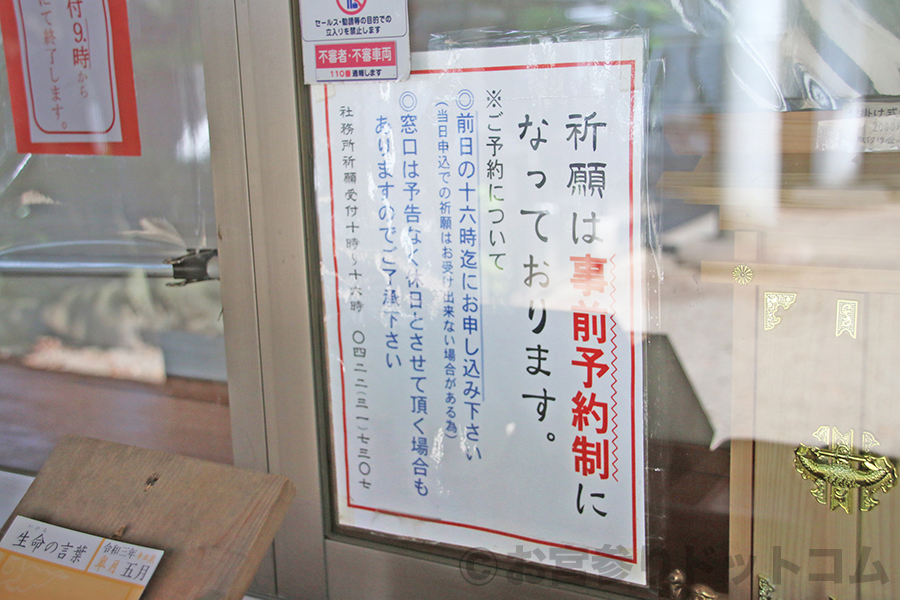 祈願は事前予約制に
なっております。
※ご予約について
◎前日の十六時迄にお申し込み下さい
(当日申込での祈願はお受け出来ない場合がある為)
◎窓口は予告なく休日とさせて頂く場合も
ありますのでご了承下さい
社務所祈願受付十時〜十六時 〇四二二(三一)七三〇七
セールス・勧誘等の目的での
立入りを禁止します
不審者・不審車両
110番通報します
付9.時から
にて終了します。
生命の言葉
令和三年
皐月 五月
©お宮参りドットコム